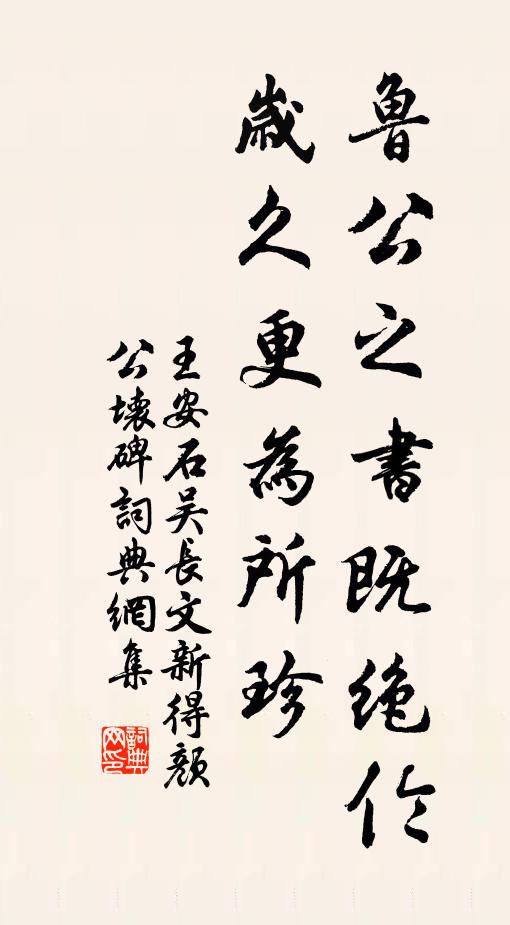 魯公之書既绝伦
歲久更為所珍
王安石吴長文新得顏
公壞碑詞典網集
詞典网印